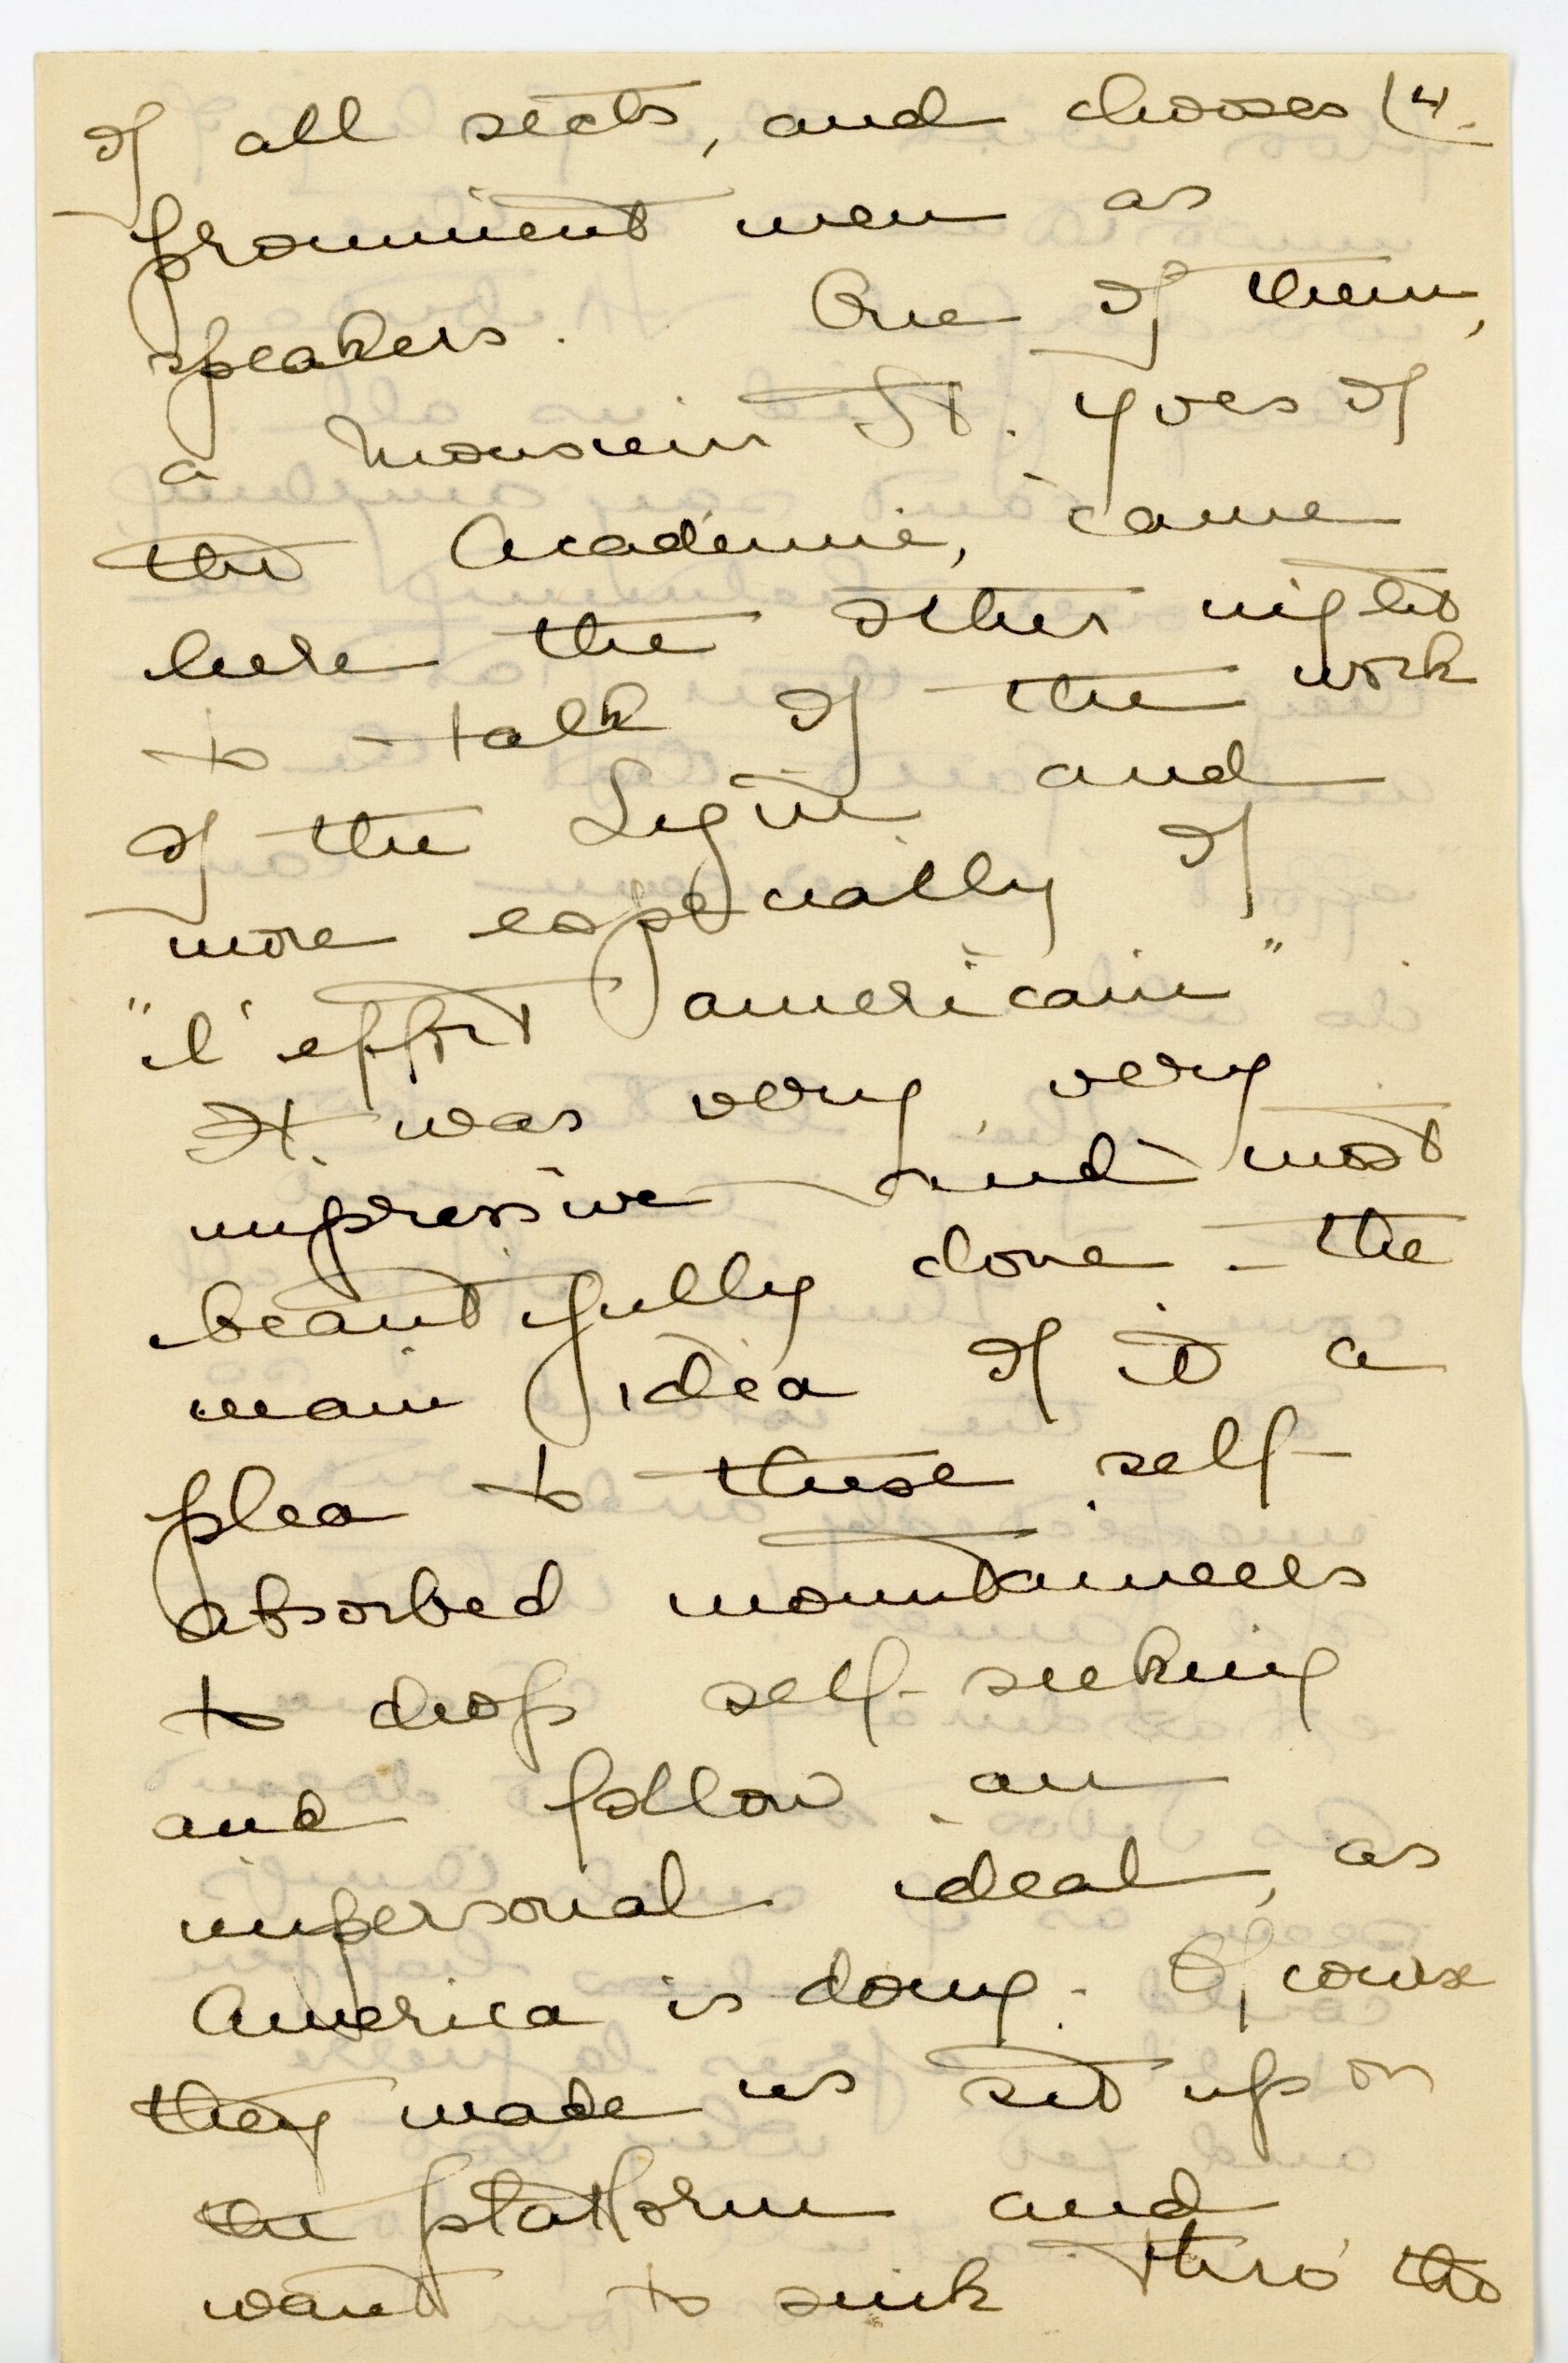 of all sects, and chooses (4.
prominent men as
speakers. One of them,
a Monsieur St. Yves of
the Académie, came
here the other night
to talk of the work
of the Ligue and
more especially of
"l'effort americain"
It was very, very
impressive and most
beautifully done - the
main idea of it a
plea to these self-
absorbed mountaineers
to drop self-seeking
and follow an
impersonal ideal, as
America is doing. Of course
they made us sit up on
the platform and
want to sink thro' the